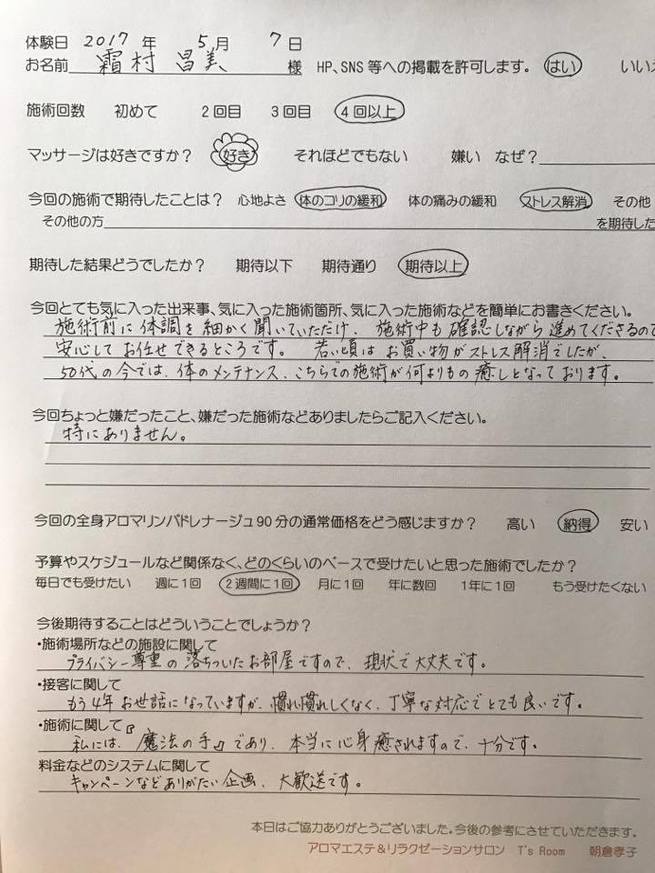 体験日 2017 年 5月 7日
お名前 霜村 昌美 様 HP、SNS 等への掲載を許可します。 はい いいえ
施術回数 初めて 2回目 3回目 4回以上
マッサージは好きですか？ 好き それほどでもない 嫌い なぜ？
今回の施術で期待したことは？ 心地よさ 体のコリの緩和 体の痛みの緩和 ストレス解消 その他
その他の方 を期待した
期待した結果どうでしたか？ 期待以下 期待通り 期待以上
今回とても気に入った出来事、気に入った施術箇所、気に入った施術などを簡単にお書きください。
施術前に体調を細かく聞いていただけ、施術中も確認しながら進めてくださるので
安心してお任せできるところです。 若い頃はお買い物がストレス解消でしたが、
50代の今では、体のメンテナンス、こちらでの施術が何よりもの癒しとなっております。
今回ちょっと嫌だったこと、嫌だった施術などありましたらご記入ください。
特にありません。
今回の全身アロマリンパドレナージュ90分の通常価格をどう感じますか？ 高い 納得 安い
予算やスケジュールなど関係なく、どのくらいのペースで受けたいと思った施術でしたか？
毎日でも受けたい 週に1回 2週間に1回 月に1回 年に数回 1年に1回 もう受けたくない
今後期待することはどういうことでしょうか？
・施術場所などの施設に関して
プライバシー尊重の落ちついたお部屋ですので、現状で大丈夫です。
・接客に関して
もう4年お世話になっていますが、慣れ慣れしくなく、丁寧な対応でとても良いです。
・施術に関して
私には、『魔法の手』であり、本当に心身癒されますので、十分です。
料金などのシステムに関して
キャンペーンなどありがたい企画、大歓迎です。
本日はご協力ありがとうございました。今後の参考にさせていただきます。
アロマエステ＆リラクゼーションサロン T's Room 朝倉孝子